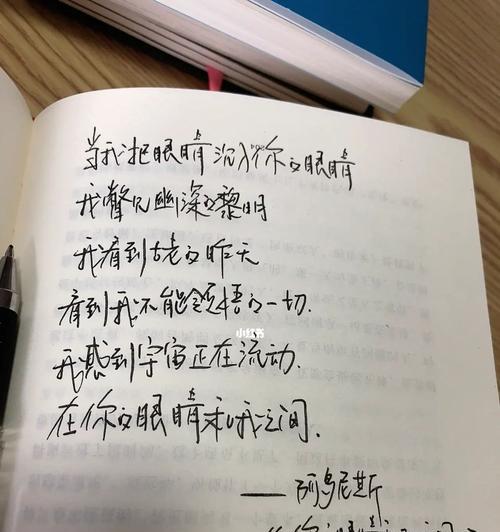 当我把眼睛沉入你的眼睛
我瞥见幽深的黎明
我看到古老的昨天
看到我不能领悟的一切.
我感到宇宙正在流动.
在你的眼睛和我之间.
——阿多尼斯
小红书